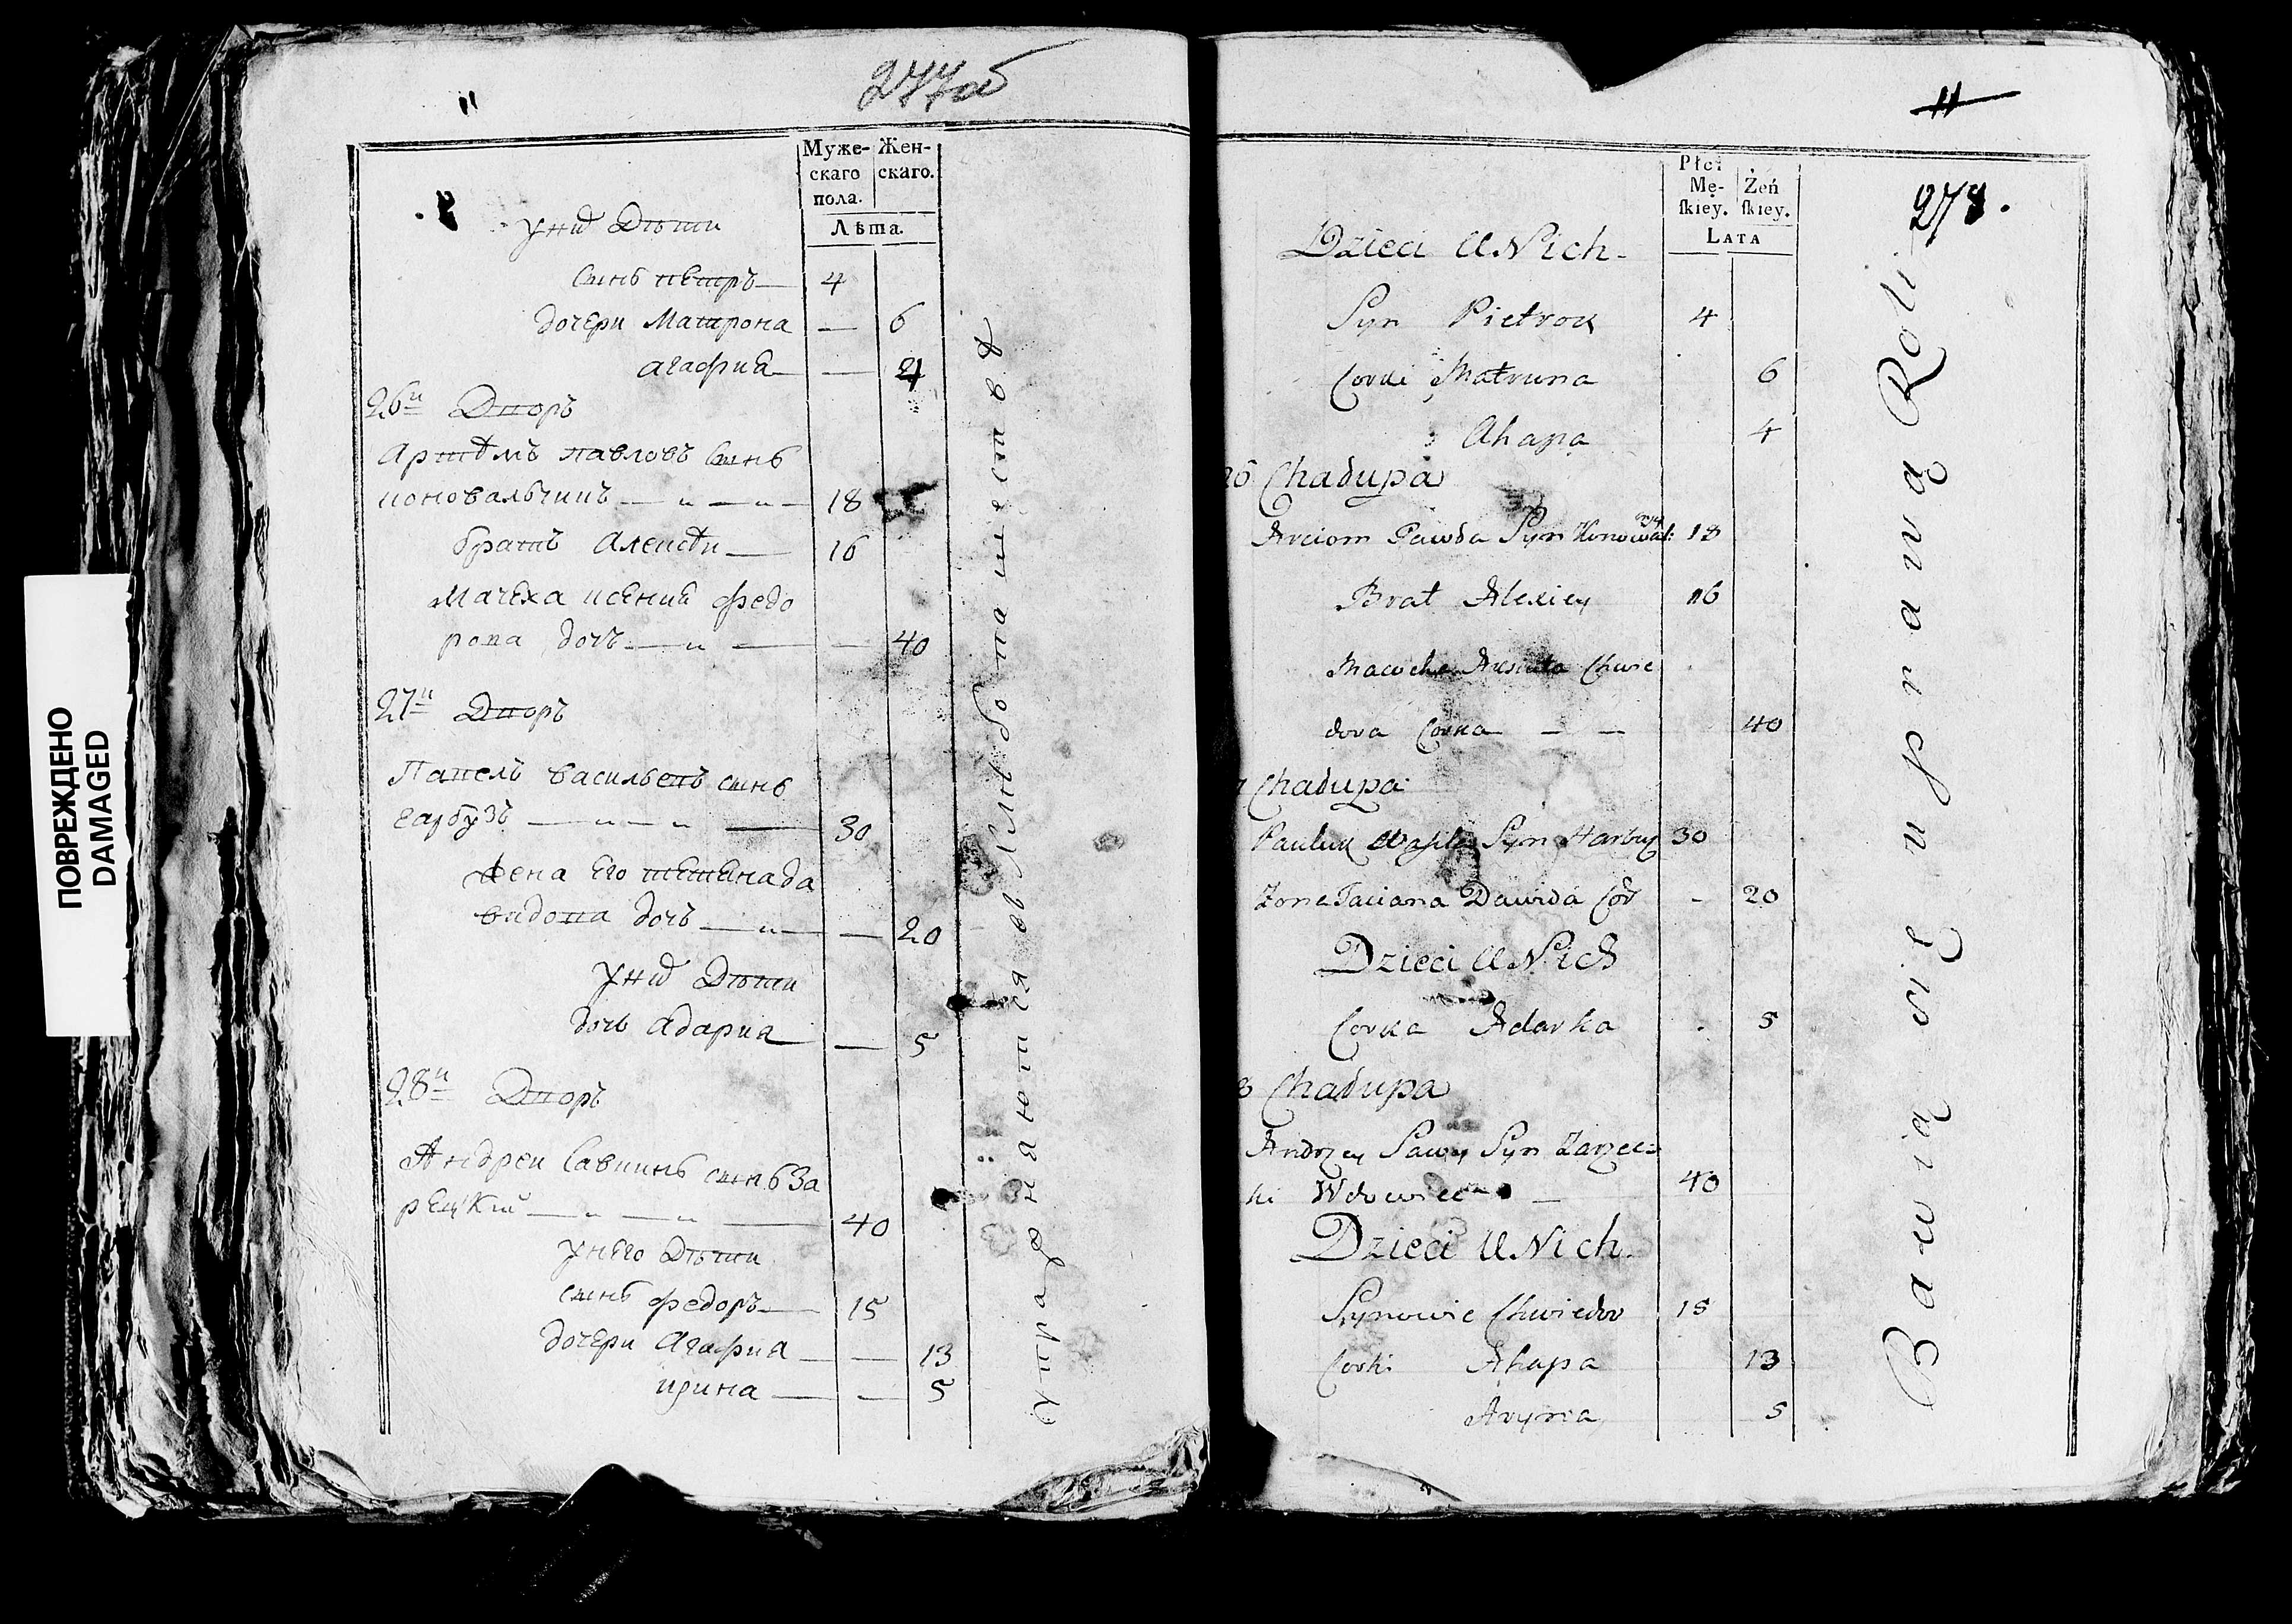 ПОВРЕЖДЕНО
DAMAGED
11
277об
Муже-
скаго
пола.
Жен-
скаго.
Лѣта.
у нихъ Дѣти
сынъ петръ — 4
дочери Матрона — 6
агафия — 4
26й Дворъ
Артемъ павловъ сынъ
коновальчикъ — 18
братъ Алексѣи — 16
Мачеха ксения федо
рова дочь — 40
27й Дворъ
Павелъ васильевъ сынъ
гарбузъ — 30
жена Его татьяна да
видова дочь — 20
у нихъ Дѣти
дочь адарка — 5
28й Дворъ
Андреи Савкинъ сынъ За
рецкий — 40
у него Дѣти
сынъ федоръ — 15
дочери Агафия — 13
ирина — 5
упражняются въ хлѣбопашествѣ
11
278.
Płci
Mę-
ſkiey.
Żeń
ſkiey.
LATA
Dzieci U Nich
Syn Pietrok 4
Corki Matruna 6
Ahapa 4
26 Chałupa
Arciom Pawła Syn Konował: 18
Brat Alexiey 16
Macocha Chwie
dora Corka — — 40
Chałupa
Pauluk Wasila Syn Harbuz 30
Zona Taciana Dawida Cor - 20
Dzieci U Nich
Corka Adarka 5
8 Chałupa
Andrzey Sawy Syn Zarzec=
ki Wdowiec — 40
Dzieci U Nich
Synowie Chwiedor 15
Corki Ahapa 13
Aryna 5
Bawią się uprawą Roli